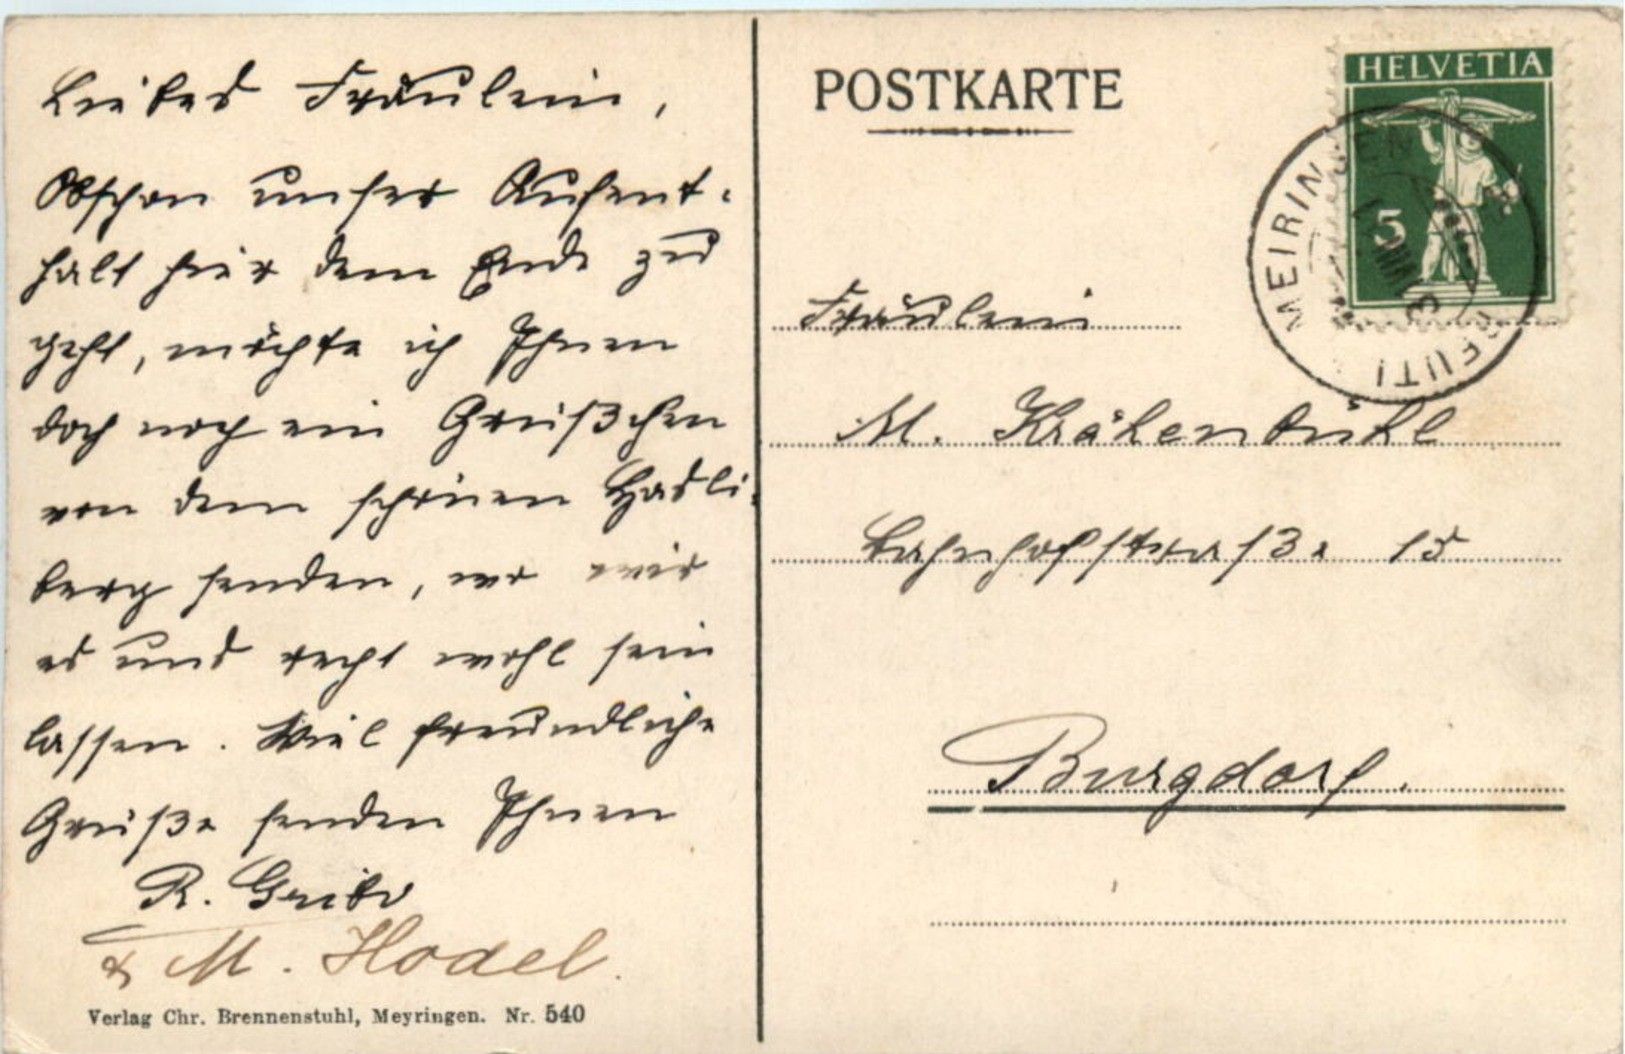 Liebes Fräulein,
Obschon unser Aufent-
halt hier dem Ende zu
geht, möchte ich Ihnen
doch noch ein Grüßchen
von dem schönen Hasli-
berg senden, wo wir
es uns recht wohl sein
lassen. Viel freundliche
Grüße senden Ihnen
R.
& M. Hodel.
Verlag Chr. Brennenstuhl, Meyringen. Nr. 540
POSTKARTE
HELVETIA
5
MEIRINGEN
Fräulein
M. Krähenbühl
Bahnhofstraße 15
Burgdorf.